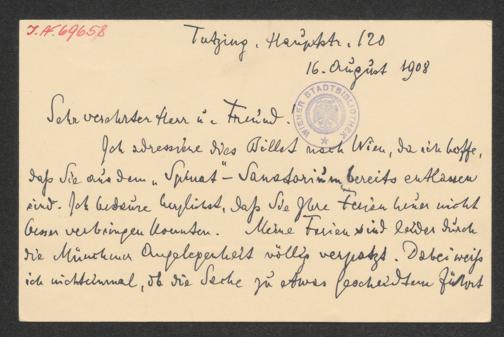 I.N. 69658
Tutzing, Hauptstr. 120
16. August 1908
WIENER STADTBIBLIOTHEK
Sehr verehrter Herr u. Freund!
Ich adressiere dies Billet nach Wien, da ich hoffe,
daß Sie aus dem „Spinat"-Sanatorium bereits entlassen
sind. Ich bedaure herzlichst, daß Sie Ihre Ferien heuer nicht
besser verbringen konnten. Meine Ferien sind leider durch
die Münchner Angelegenheit völlig verpatzt. Dabei weiß
ich nicht einmal, ob die Sache zu etwas Gescheidtem führt